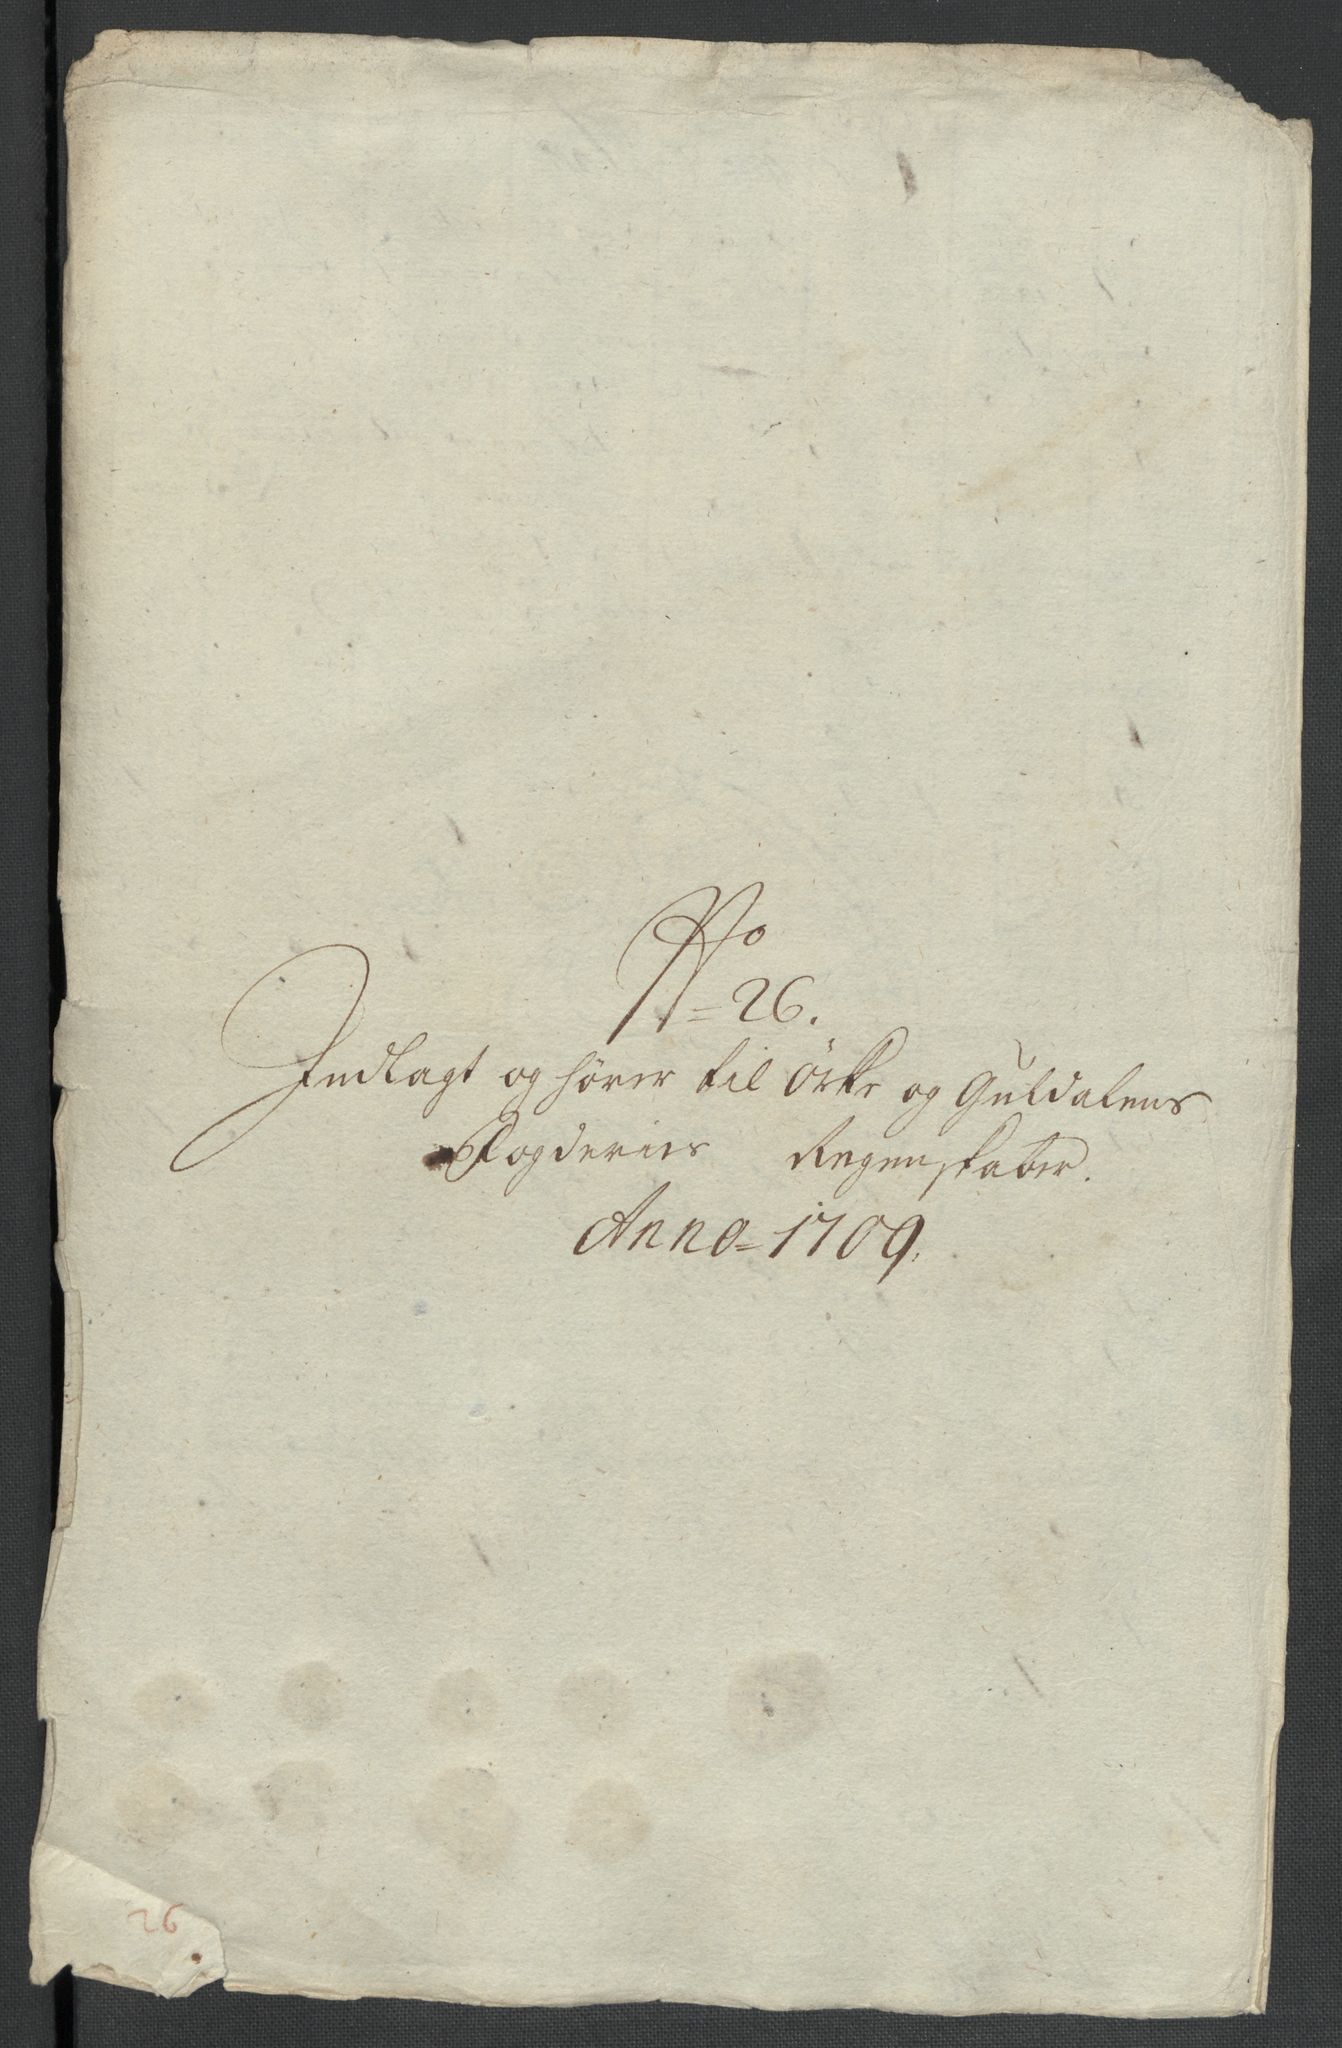 No
= 26.
Indlagt og hører til Örke og Guldalens
Fogderies Regenskaber.
Anno = 1709.
26